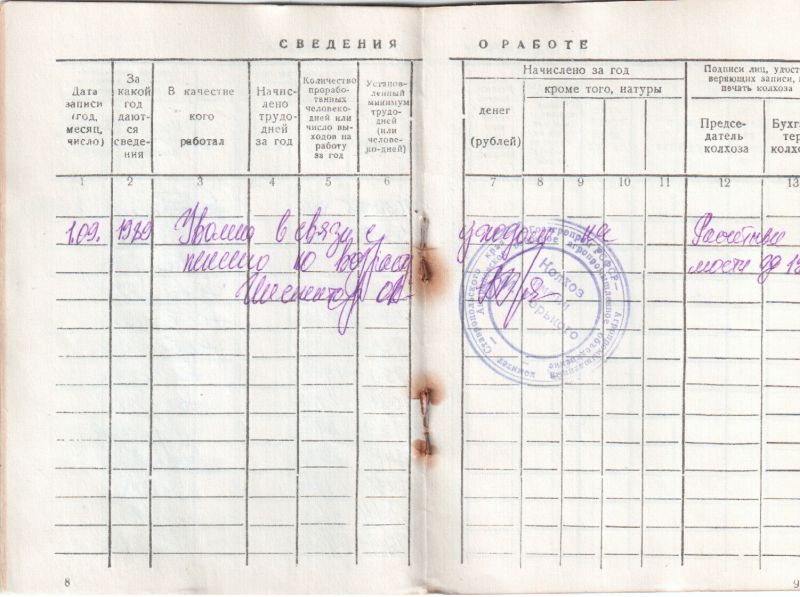 СВЕДЕНИЯ О РАБОТЕ
Дата записи (год, месяц, число)
За какой год даются сведения
В качестве кого работал
Начислено трудодней за год
Количество проработанных человеко-дней или число выходов на работу за год
Установленный минимум трудодней (или человеко-дней)
Начислено за год
денег (рублей)
кроме того, натуры
Подписи лиц, удост
веряющих записи,
печать колхоза
Председатель колхоза
Бухг
тер
колхо
1 2 3 4 5 6 7 8 9 10 11 12 13
1.09. 1989 Уволена в связи с уходом на
пенсию по возрасту
Инспектор ОК
Колхоз
имени
Горького
8
9